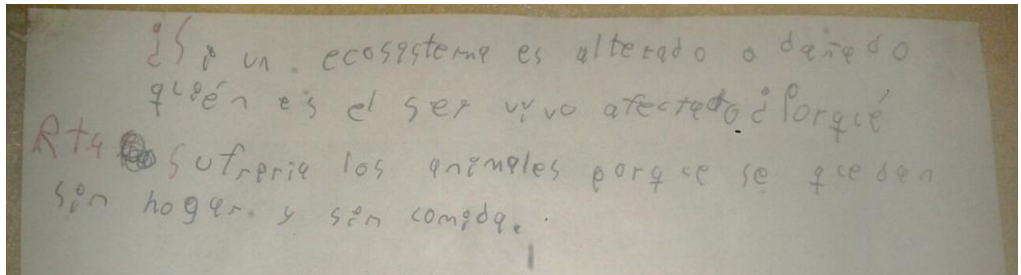 ¿Si un. ecosistema es alterado o dañado
quién es el ser vivo afectado¿Porqué
Rta Sufreria los animales porque se quedan
sin hogar. y sin comida.